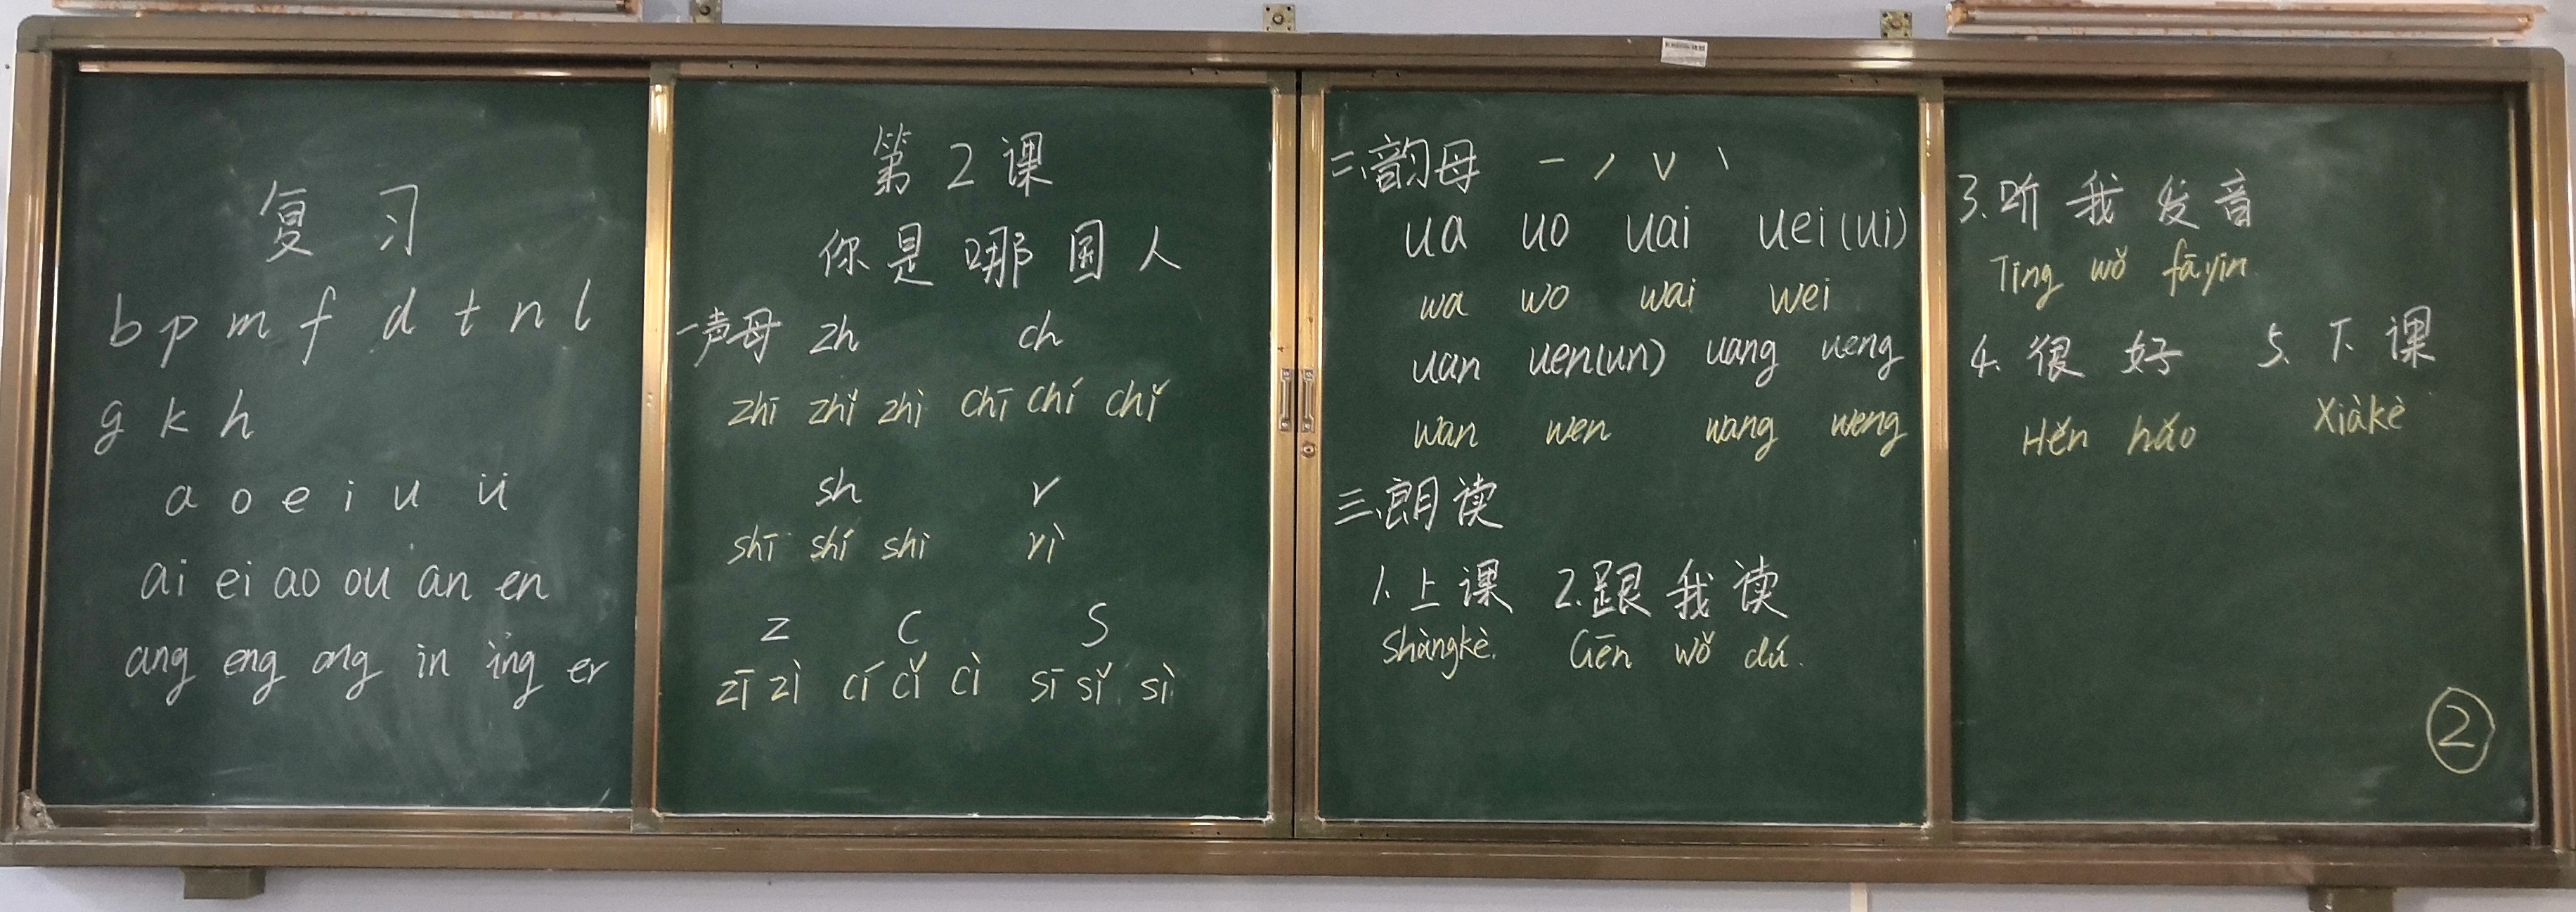 复 习
b p m f d t n l
g k h
a o e i u ü
ai ei ao ou an en
ang eng ong in ing er
第 2 课
你 是 哪 国 人
一声母 zh ch
zhī zhǐ zhì chī chí chǐ
sh r
shī shí shì rì
z c s
zī zì cí cǐ cì sī sǐ sì
二、韵母 ˉ ˊ ˇ ˋ
ua uo uai uei(ui)
wa wo wai wei
uan uen(un) uang ueng
wan wen wang weng
三、朗读
1. 上课 2. 跟 我 读
Shàngkè. Gēn wǒ dú.
3. 听 我 发 音
Tīng wǒ fāyīn.
4. 很 好 5. 下 课
Hěn hǎo Xiàkè
②